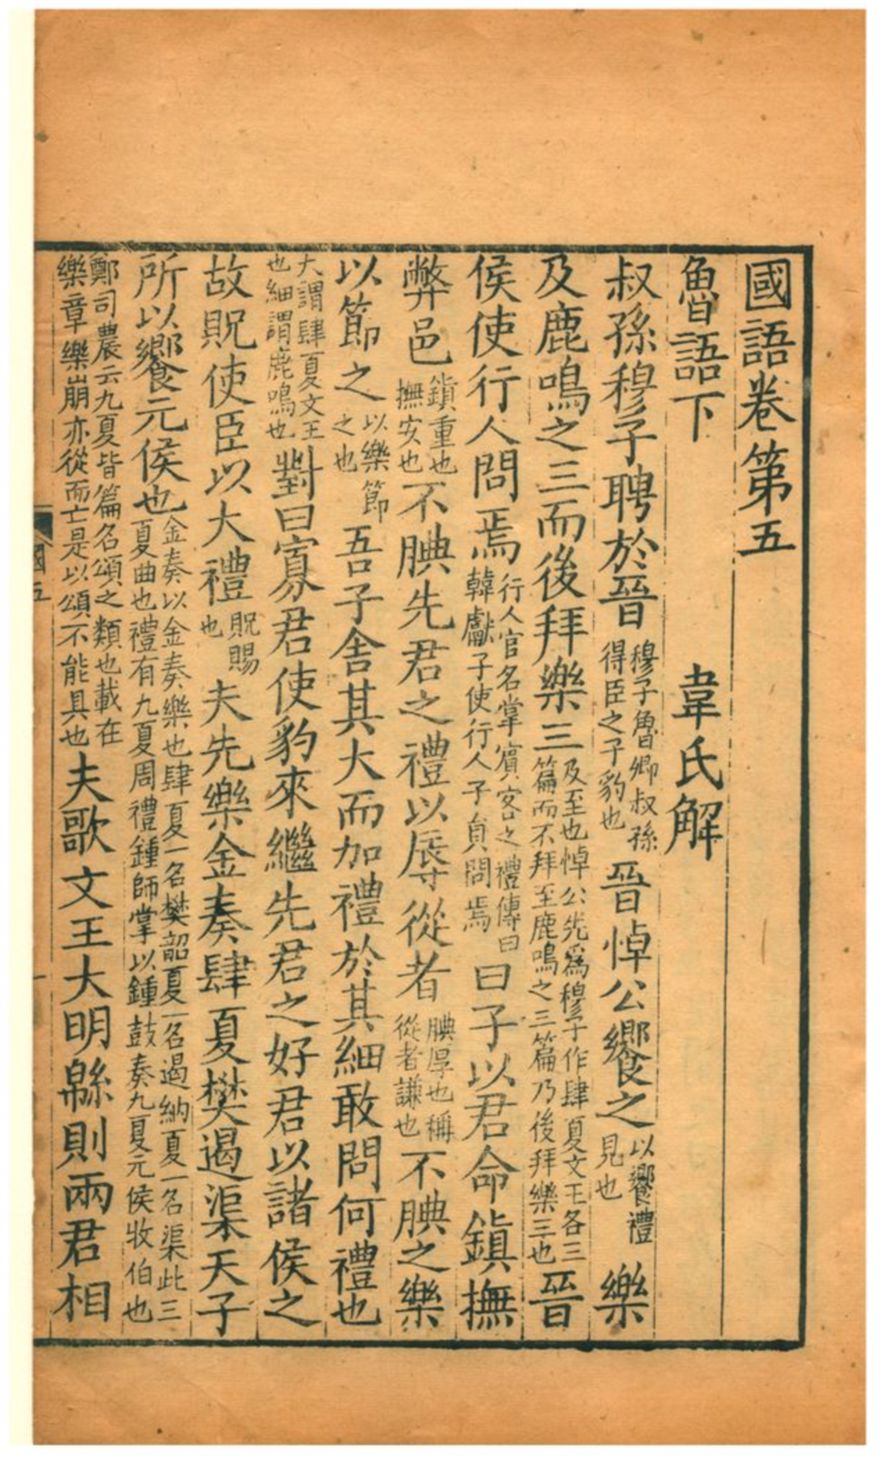 國語卷第五
魯語下 韋氏解
叔孫穆子聘於晉穆子魯卿叔孫得臣之子豹也晉悼公饗之以饗禮見也樂
及鹿鳴之三而後拜樂三及至也悼公先爲穆子作肆夏文王各三篇而不拜至鹿鳴之三篇乃後拜樂三也晉
侯使行人問焉行人官名掌賓客之禮傳曰韓獻子使行人子貟問焉曰子以君命鎮撫
弊邑鎮重也撫安也不腆先君之禮以辱從者腆厚也稱從者謙也不腆之樂
以節之以樂節之也吾子舍其大而加禮於其細敢問何禮也
大謂肆夏文王也細謂鹿鳴也對曰寡君使豹來繼先君之好君以諸侯之
故貺使臣以大禮貺賜也夫先樂金奏肆夏樊遏渠天子
所以饗元侯也金奏以金奏樂也肆夏一名樊韶夏一名遏納夏一名渠此三夏曲也禮有九夏周禮鍾師掌以鍾鼓奏九夏元侯牧伯也
鄭司農云九夏皆篇名頌之類也載在樂章樂崩亦從而亡是以頌不能具也夫歌文王大明緜則兩君相
國五